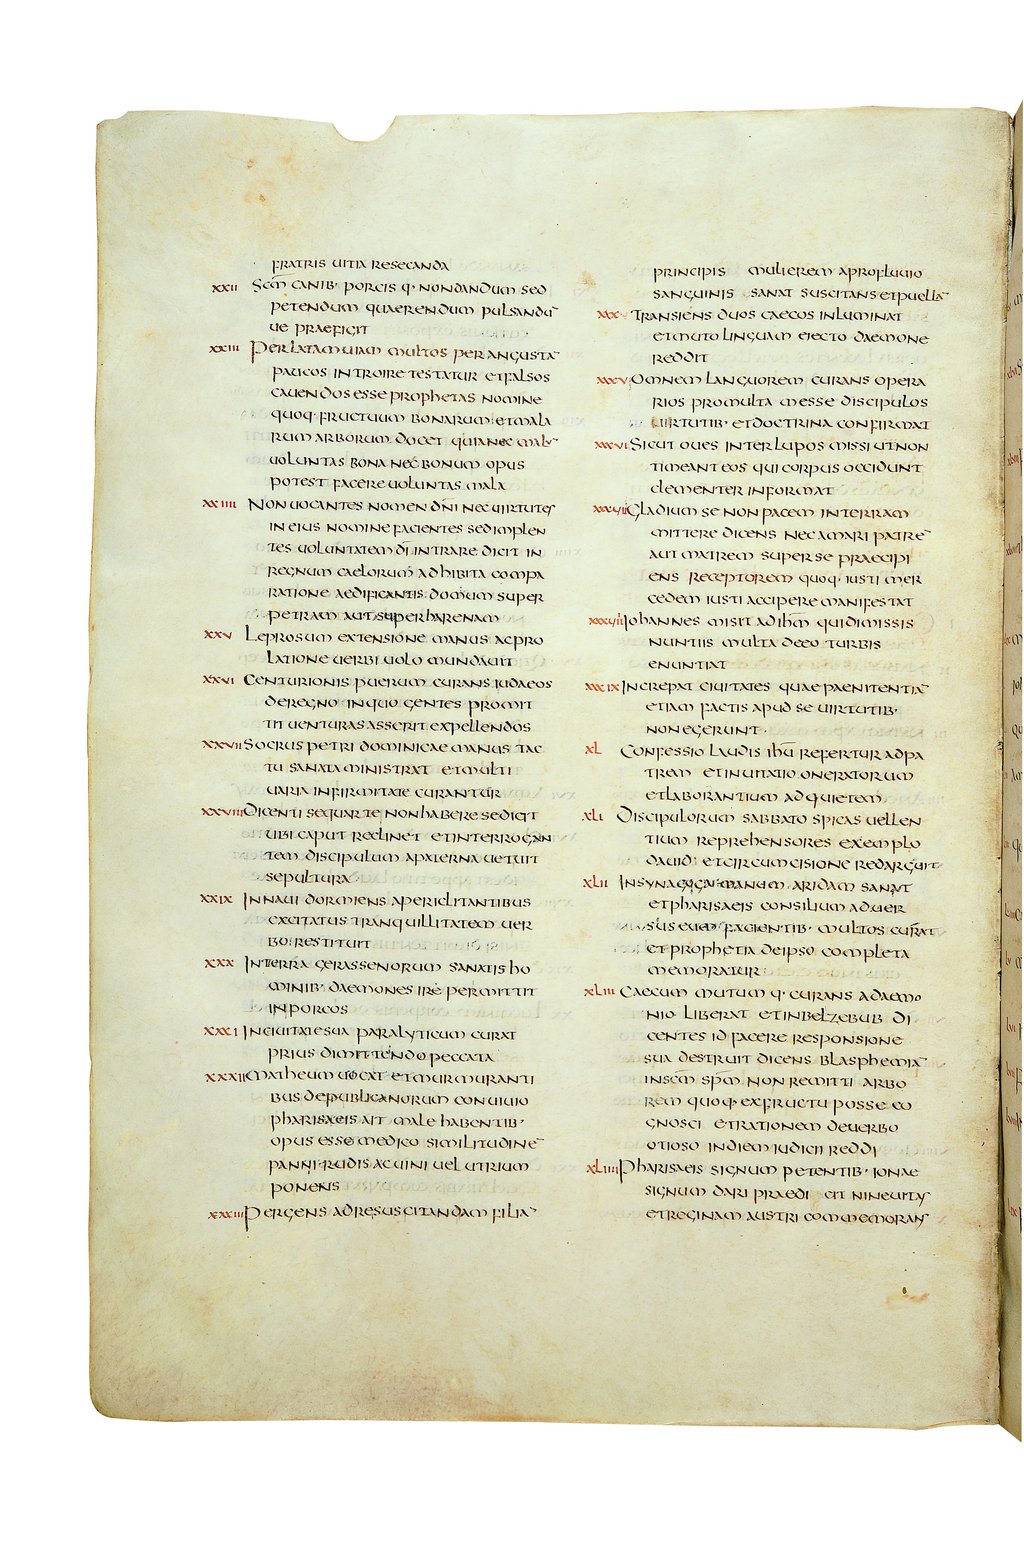 FRATRIS UITIA RESECANDA
XXII SCM CANIB· PORCIS Q· NONDANDUM SED
PETENDUM QUAERENDUM PULSANDU¯
UE PRAEFICIT
XXIII PER LATAM UIAM MULTOS PER ANGUSTA¯
PAUCOS INTROIRE TESTATUR ET FALSOS
CAUENDOS ESSE PROPHETAS NOMINE
QUOQ· FRUCTUUM BONARUM ET MALA
RUM ARBORUM DOCET QUIA NEC MALA
UOLUNTAS BONA NEC BONUM OPUS
POTEST FACERE UOLUNTAS MALA
XXIIII NON UOCANTES NOMEN DNI NEC UIRTUTES
IN EIUS NOMINE FACIENTES SED IMPLEN
TES UOLUNTATEM DI INTRARE DICIT IN
REGNUM CAELORUM ADHIBITA COMPA
RATIONE AEDIFICANTIS DOMUM SUPER
PETRAM AUT SUPER HARENAM
XXV LEPROSUM EXTENSIONE MANUS AC PRO
LATIONE UERBI UOLO MUNDAUIT
XXVI CENTURIONIS PUERUM CURANS IUDAEOS
DE REGNO IN QUO GENTES PROMIT
TIT UENTURAS ASSERIT EXPELLENDOS
XXVII SOCRUS PETRI DOMINICAE MANUS TAC
TU SANATA MINISTRAT ET MULTI
UARIA INFIRMITATE CURANTUR
XXVIII DICENTI SEQUAR TE NON HABERE SE DICIT
UBI CAPUT RECLINET ET INTERROGAN
TEM DISCIPULUM A PATERNA UETUIT
SEPULTURA
XXIX IN NAUI DORMIENS A PERICLITANTIBUS
EXCITATUS TRANQUILLITATEM UER
BO RESTITUIT
XXX IN TERRA GERASSENORUM SANATIS HO
MINIB· DAEMONES IRE PERMITTIT
IN PORCOS
XXXI IN CIUITATE SUA PARALYTICUM CURAT
PRIUS DIMITTENDO PECCATA
XXXII MATHEUM UOCAT ET MURMURANTI
BUS DE PUBLICANORUM CONUIUIO
PHARISAEIS AIT MALE HABENTIB·
OPUS ESSE MEDICO SIMILITUDINE¯
PANNI RUDIS AC UINI UEL UTRIUM
PONENS
XXXIII PERGENS AD RESUSCITANDAM FILIA¯
PRINCIPIS MULIEREM A PROFLUUIO
SANGUINIS SANAT SUSCITANS ET PUELLA¯
TRANSIENS DUOS CAECOS INLUMINAT
ET MUTO LINGUAM EIECTO DAEMONE
REDDIT
XXXV OMNEM LANGUOREM CURANS OPERA
RIOS PRO MULTA MESSE DISCIPULOS
UIRTUTIB· ET DOCTRINA CONFIRMAT
XXXVI SICUT OUES INTER LUPOS MISSI UT NON
TIMEANT EOS QUI CORPUS OCCIDUNT
CLEMENTER INFORMAT
XXXVII GLADIUM SE NON PACEM IN TERRAM
MITTERE DICENS NEC AMARI PATRE¯
AUT MATREM SUPER SE PRAECIPI
ENS RECEPTOREM QUOQ· IUSTI MER
CEDEM IUSTI ACCIPERE MANIFESTAT
XXXVIII IOHANNES MISIT AD IHM QUI DIMISSIS
NUNTIIS MULTA DE EO TURBIS
ENUNTIAT
XXXIX INCREPAT CIUITATES QUAE PAENITENTIA¯
ETIAM FACTIS APUD SE UIRTUTIB·
NON EGERUNT·
XL CONFESSIO LAUDIS IHU REFERTUR AD PA
TREM ET INUITATIO ONERATORUM
ET LABORANTIUM AD QUIETEM
XLI DISCIPULORUM SABBATO SPICAS UELLEN
TIUM REPREHENSORES EXEMPLO
DAUID· ET CIRCUMCISIONE REDARGUIT·
XLII IN SYNAGOGA MANUM ARIDAM SANAT
ET PHARISAEIS CONSILIUM ADUER
SUS EUM FACIENTIB· MULTOS CURAT
ET PROPHETIA DE IPSO COMPLETA
MEMORATUR
XLIII CAECUM MUTUM Q· CURANS A DAEMO
NIO LIBERAT ET IN BELZEBUB DI
CENTES ID FACERE RESPONSIONE
SUA DESTRUIT DICENS BLASPHEMIA¯
IN SCM SPM NON REMITTI ARBO
REM QUOQ· EX FRUCTU POSSE CO
GNOSCI ET RATIONEM DE UERBO
OTIOSO IN DIEM IUDICII REDDI
XLIIII PHARISAEIS SIGNUM PETENTIB· IONAE
SIGNUM DARI PRAEDICIT NINEUITAS
ET REGINAM AUSTRI COMMEMORANS